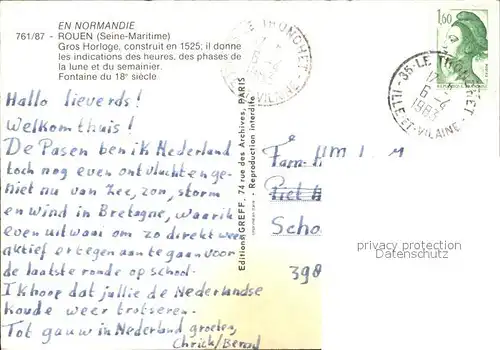 EN NORMANDIE
761/87 - ROUEN (Seine-Maritime)
Gros Horloge, construit en 1525; il donne
les indications des heures, des phases de
la lune et du semainier.
Fontaine du 18e siècle
Hallo lieverds!
Welkom thuis!
De Pasen ben ik Nederland
toch nog even ontvlucht en ge-
niet nu van zee, zon, storm
en wind in Bretagne, waar ik
even uitwaai om zo direkt weer
aktief er tegen aan te gaan voor
de laatste ronde op school.
Ik hoop dat jullie de Nederlandse
koude weer trotseren.
Tot gauw in Nederland groeten,
Editions GREFF, 74 rue des Archives, PARIS
- Reproduction Interdite
1,60
35-LE THONCHET
6-4
1983
ILLE-ET-VILAINE
Fam. H M
Piet
Scho
398
privacy protection
Datenschutz